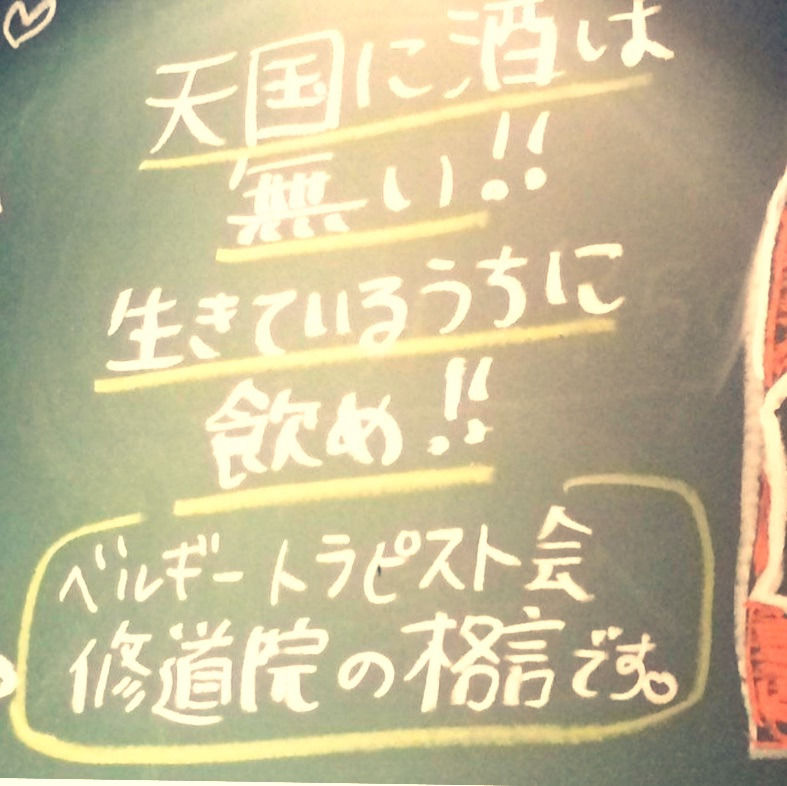 天国に酒は
無い!!
生きているうちに
飲め!!
ベルギートラピスト会
修道院の格言です。